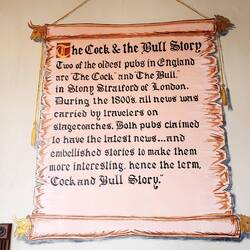 The Cock & the Bull Story
Two of the oldest pubs in England
are "The Cock" and "The Bull"
in Stony Stratford of London.
During the 1800's, all news was
carried by travelers on
stagecoaches. Both pubs claimed
to have the latest news...and
embellished stories to make them
more interesting. hence the term,
"Cock and Bull Story."